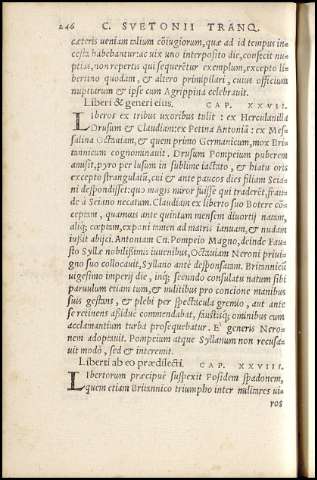 246 C. SVETONII TRANQ.
cæteris ueniam talium cōiugiorum, quæ ad id tempus in-
cesta habebantur: ac uix uno interposito die, confecit nu-
ptias, non repertis qui sequerētur exemplum, excepto li-
bertino quodam, & altero primipilari, cuius officium
nuptiarum & ipse cum Agrippina celebrauit.
Liberi & generi eius. CAP. XXVII.
Liberos ex tribus uxoribus tulit: ex Herculanilla
Drusum & Claudiam: ex Petina Antoniā: ex Mes-
salina Octauiam, & quem primo Germanicum, mox Bri-
tannicum cognominauit. Drusum Pompeium puberem
amisit, pyro per lusum in sublime iactato, & hiatu oris
excepto strangulatū, cui & ante paucos dies filiam Seia-
ni despondisset: quo magis miror fuisse qui traderēt, frau-
de à Seiano necatum. Claudiam ex liberto suo Botere cō-
ceptam, quamuis ante quintum mensem diuortij natam,
aliq; cœptam, exponi tamen ad matris ianuam, & nudam
iussit abijci. Antoniam Cn. Pompeio Magno, deinde Fau-
sto Syllæ nobilissimis iuuenibus, Octauiam Neroni priui-
gno suo collocauit, Syllano antè desponsam. Britannicū
uigesimo imperij die, inq; secundo consulatu natum sibi
paruulum etiam tum, & militibus pro concione manibus
suis gestans, & plebi per spectacula gremio, aut ante
se retinens assiduè commendabat, faustisq; ominibus cum
acclamantium turba prosequebatur. E' generis Nero-
nem adoptauit. Pompeium atque Syllanum non recusa-
uit modò, sed & interemit.
Liberti ab eo prædilecti. CAP. XXVIII.
Libertorum præcipuè suspexit Posidem spadonem,
quem etiam Britannico triumpho inter militares ui-
ros